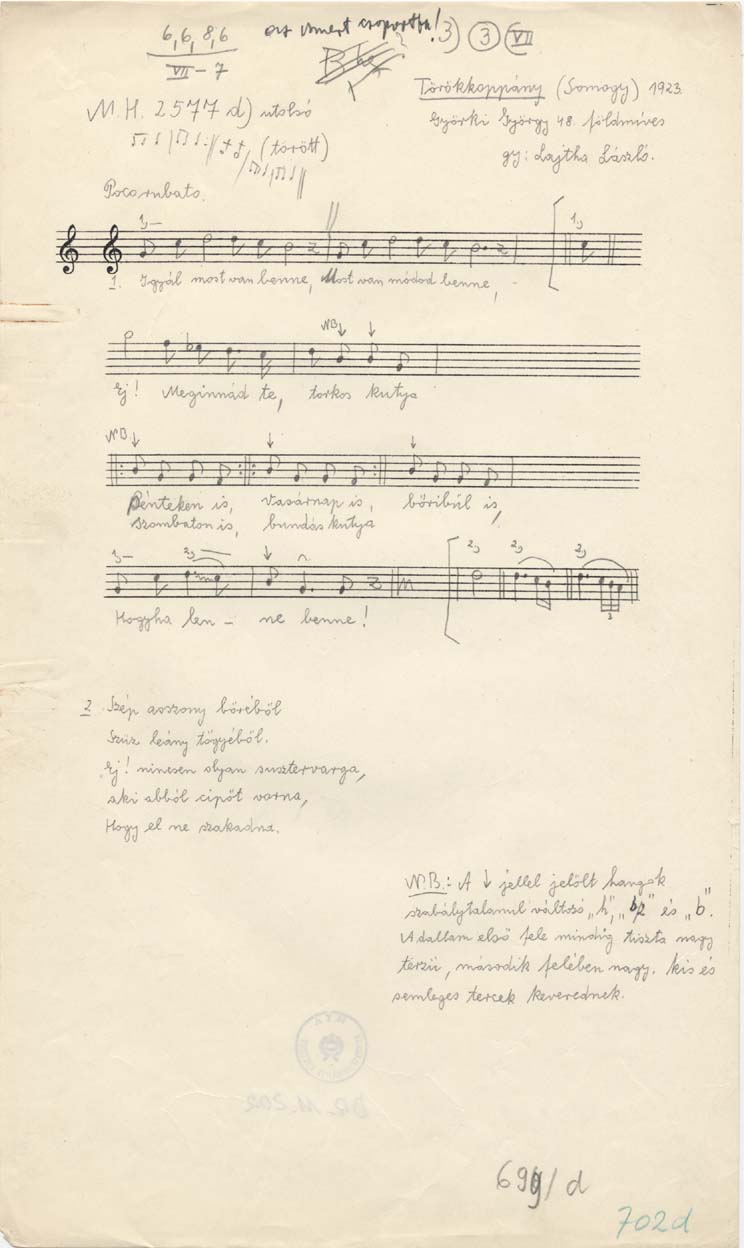 6,6,8,6
VII – 7
az ismert csoportba! 3) 3 VII
M.H. 2577 d) utolsó
(törött)
Törökkoppány (Somogy) 1923.
Györki György 48. földmíves
gy: Lajtha László.
Poco rubato.
1,
1,
1. Igyál most van benne, Most van módod benne,
NB
Ej! Meginnád te, torkos kutya
NB
Pénteken is, Vasárnap is, bőribűl is,
Szombaton is, bundás kutya
1, 2, 2, 2, 2,
3
Hogyha len – ne benne!
2. Szép asszony bőréből
Szűz leány tőgyéből.
Ej! nincsen olyan susztervarga,
aki abból cipőt varna,
Hogy el ne szakadna.
N.B.: A ↓ jellel jelölt hangok
szabálytalanul változó „h", és „b".
A dallam első fele mindig tiszta nagy
tercű, második felében nagy. kis és
semleges tercek keverednek.
699/d
702d